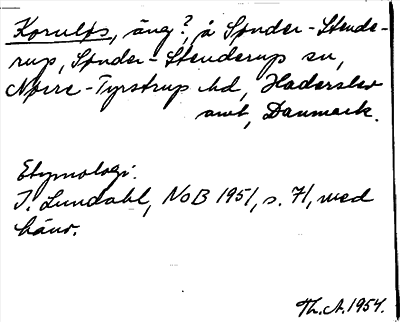 Korulfs, äng?, å Sønder-Stende-
rup, Sønder-Stenderup sn,
Nørre-Tyrstrup hd, Haderslev
amt, Danmark.
Etymologi.
I. Lundahl, NoB 1951, s. 71, med
hänv.
Th. A. 1954.